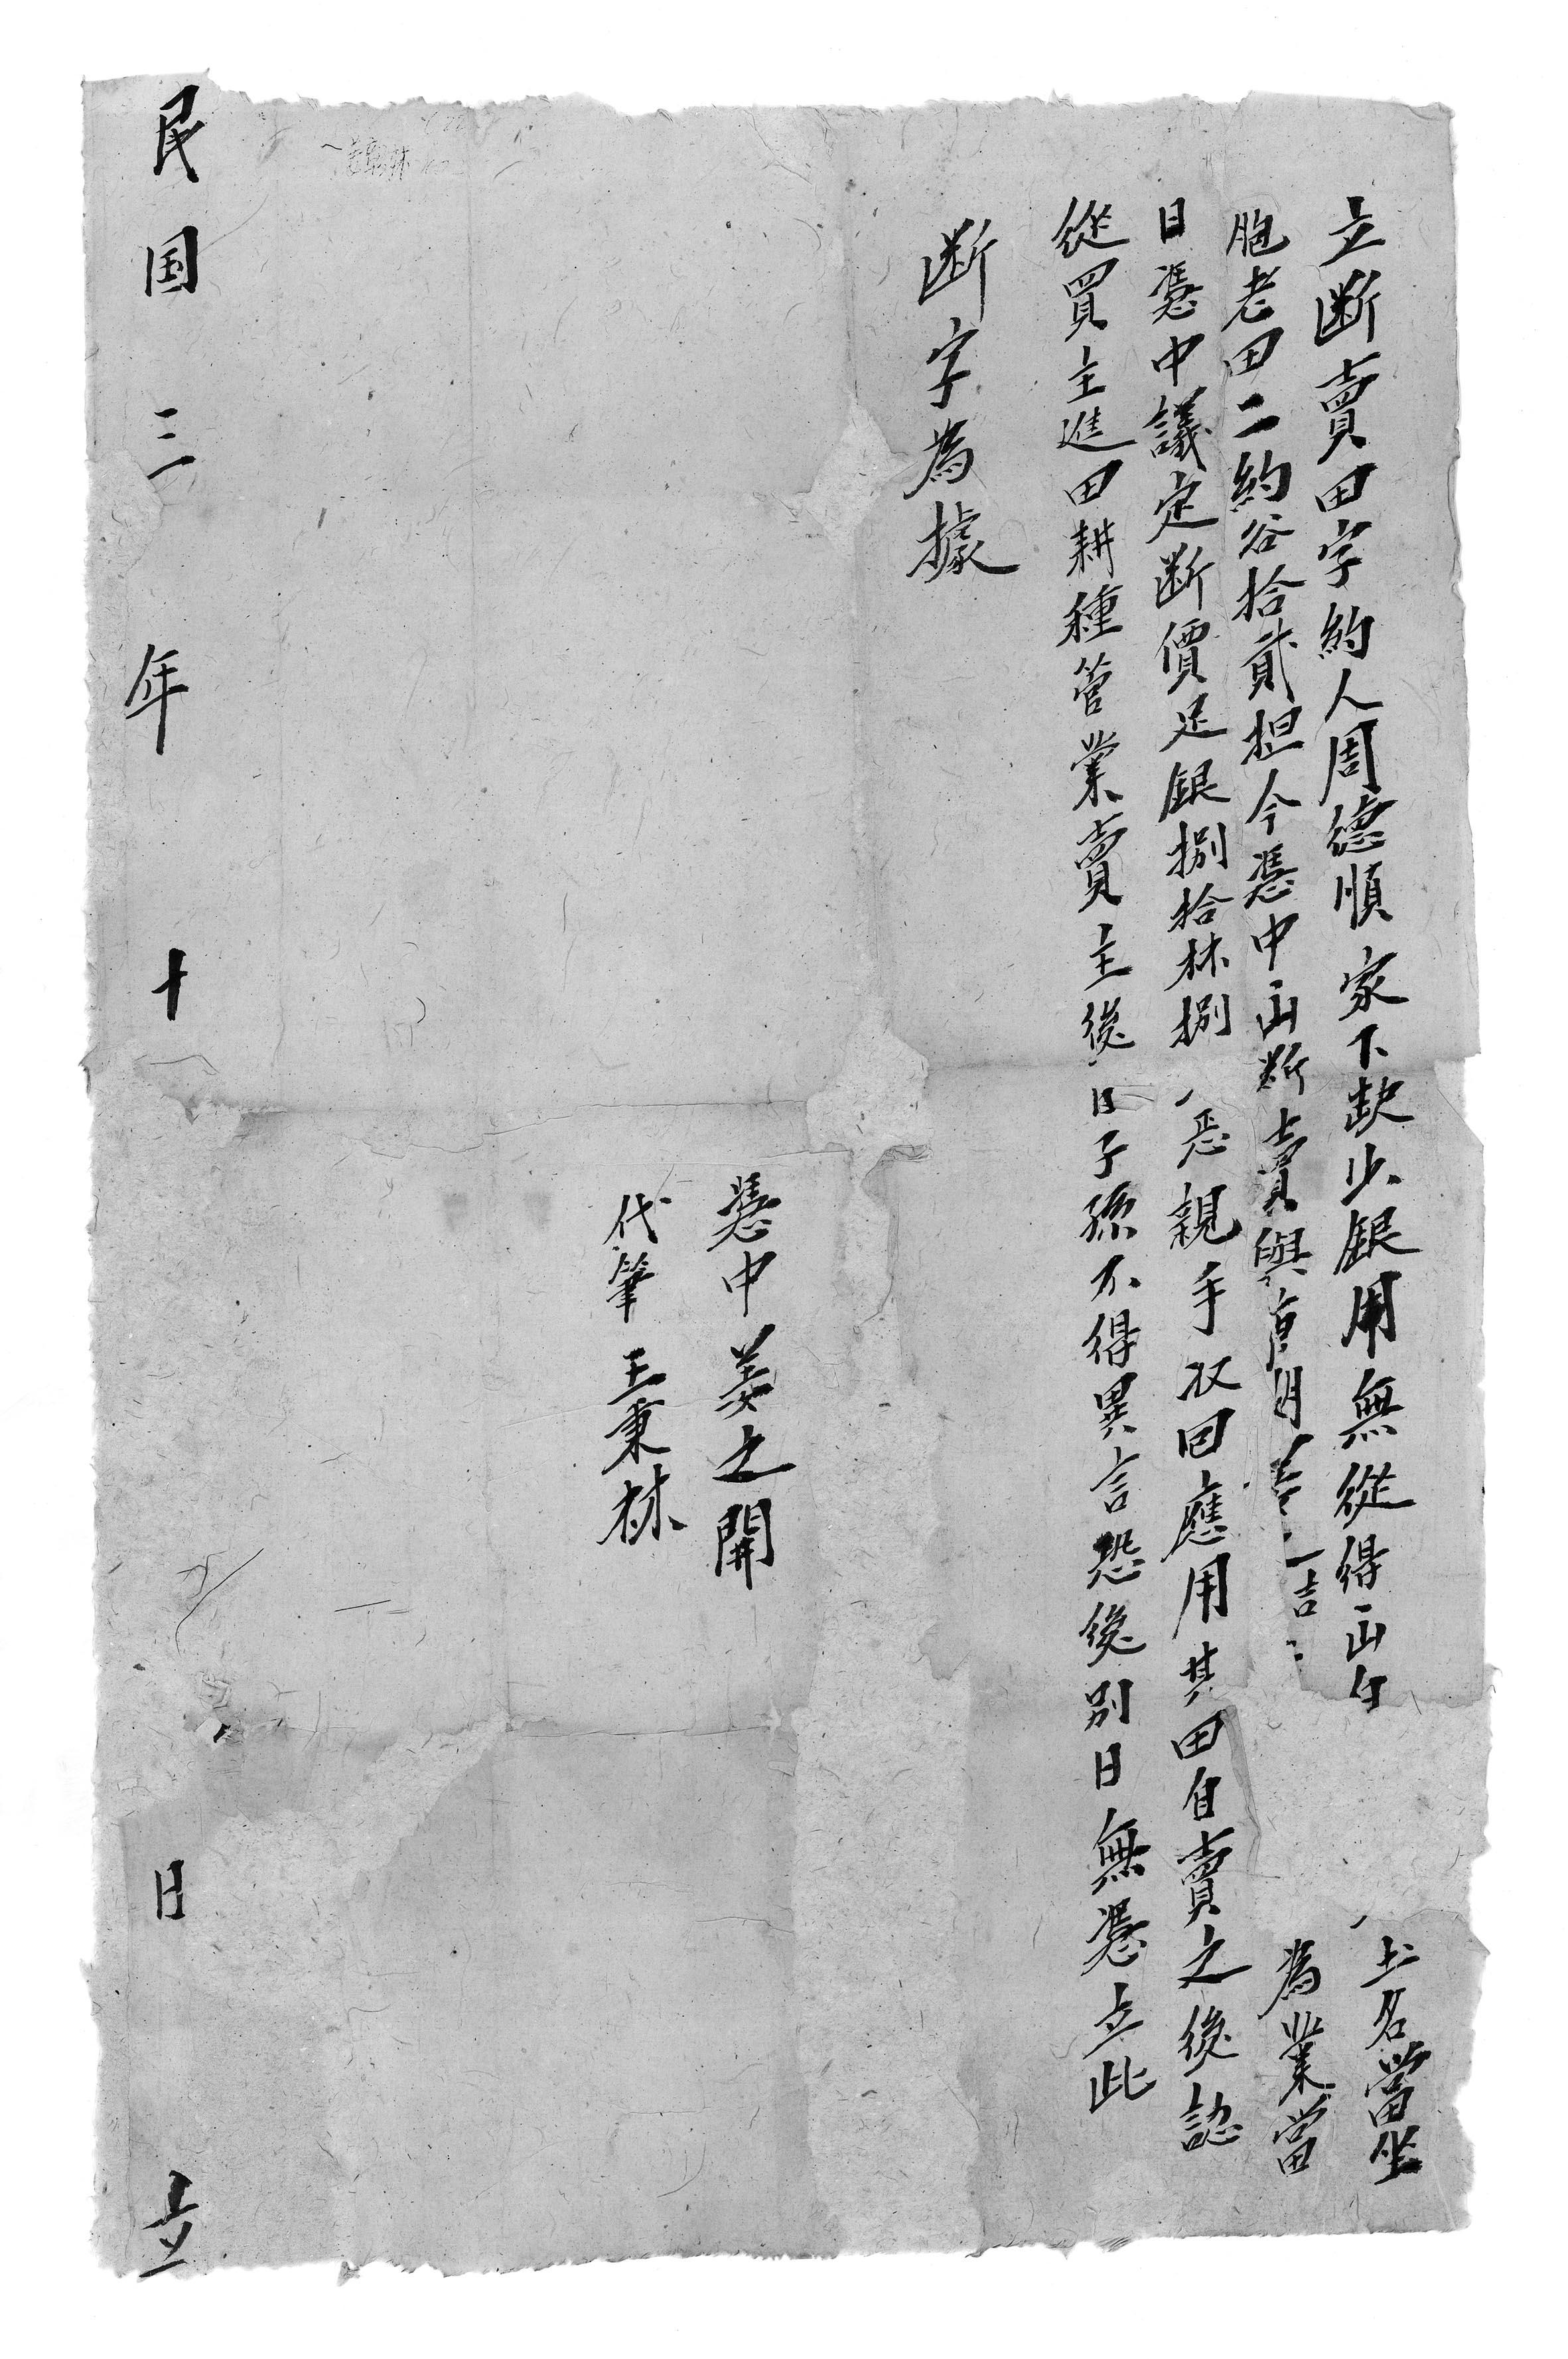 立断賣田字約人周德順家下缺少銀用無從得出自土名當坐
胞老田二約谷拾貳担今憑中出断賣與姜吉為業當
日憑中議定断價足銀捌拾捌親手收回應用其田自賣之後認
從買主進田耕種管業賣主後日子孫不得異言恐後別日無憑立此
断字為據
憑中姜之開
代筆王秉林
民国三年十日立